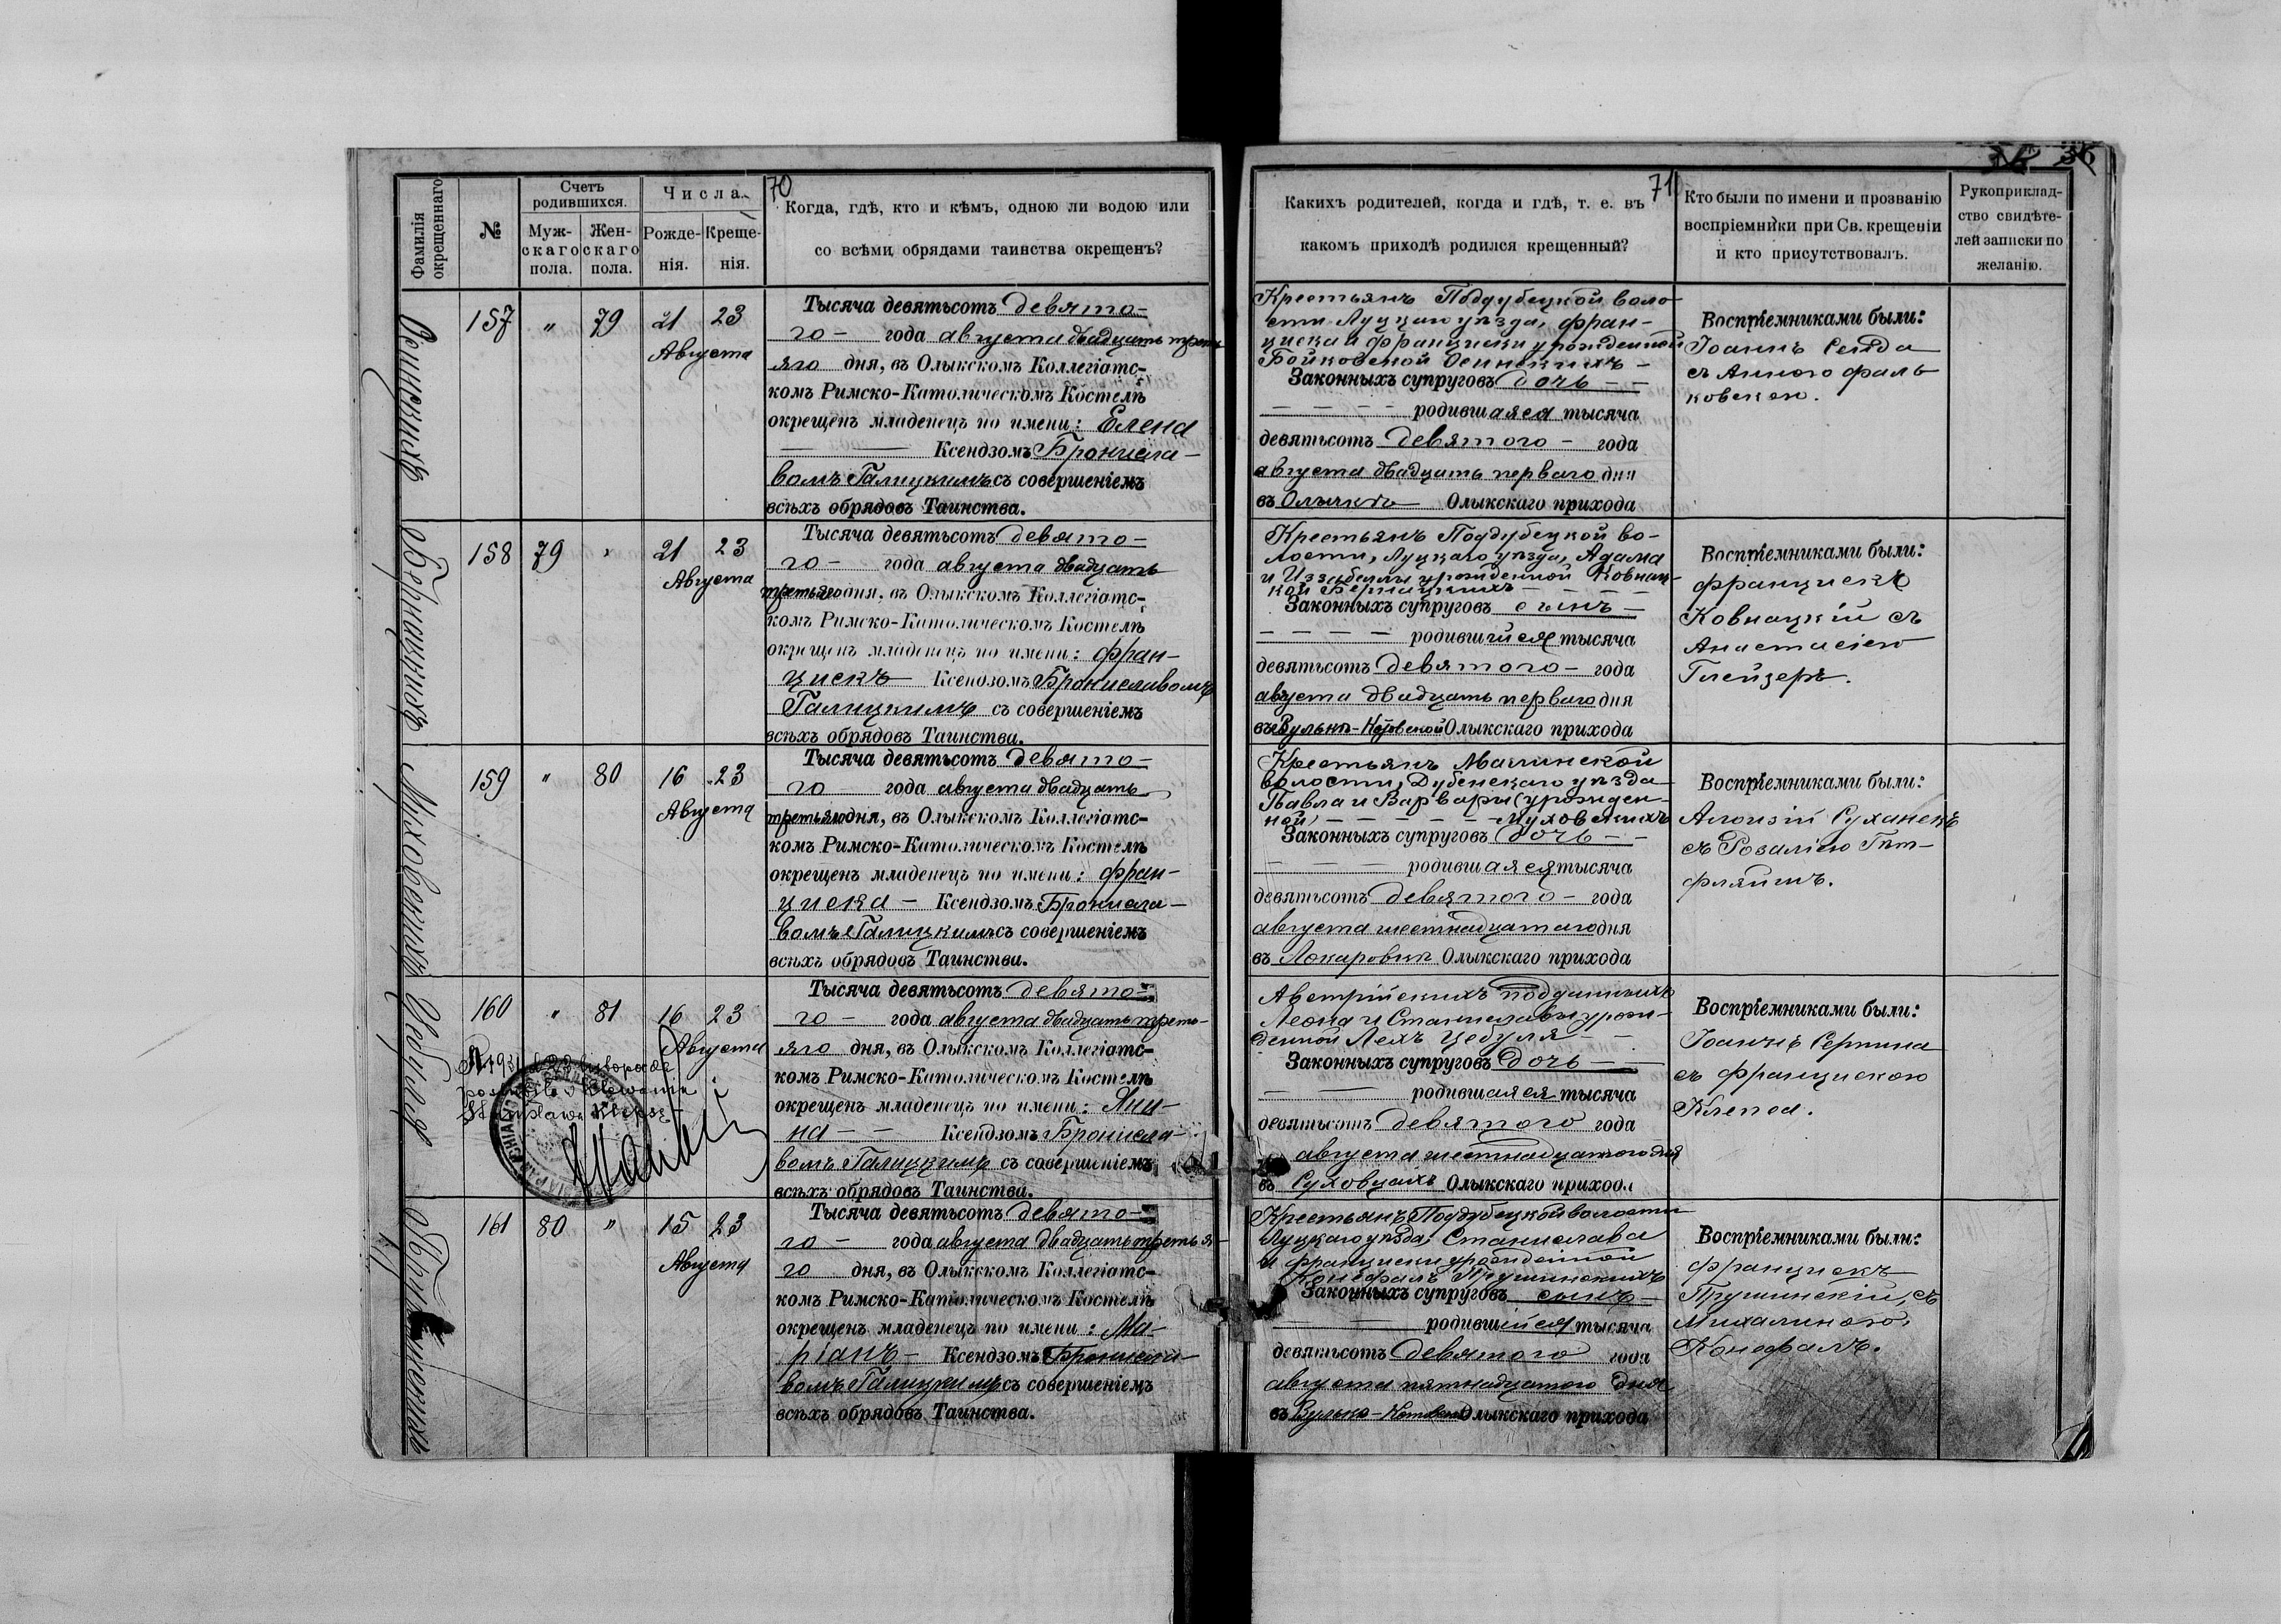 70
Фамилія окрещеннаго
№
Счетъ родившихся.
Муж-
скаго
пола.
Жен-
скаго
пола.
Числа.
Рожде-
нія.
Креще-
нія.
Когда, гдѣ, кто и кѣмъ, одною ли водою или
со всѣми обрядами таинства окрещенъ?
157 " 79 21 23
Августа
Тысяча девятьсотъ девято-
го - года августа двадцать треть
яго дня, въ Олыкскомъ Коллегіатс-
комъ Римско-Католическомъ Костелѣ
окрещенъ младенецъ по имени: Елена
Ксендзомъ Брониславо-
вомъ Галицкимъ съ совершеніемъ
всѣхъ обрядовъ Таинства.
158 79 " 21 23
Августа
Тысяча девятьсотъ девято-
го - года августа двадцать
третьяго дня, въ Олыкскомъ Коллегіатс-
комъ Римско-Католическомъ Костелѣ
окрещенъ младенецъ по имени: Фран-
цискъ Ксендзомъ Брониславомъ
Галицкимъ съ совершеніемъ
всѣхъ обрядовъ Таинства.
Муховскихъ
159 " 80 16 23
Августа
Тысяча девятьсотъ девято-
го года августа двадцать
третьяго дня, въ Олыкскомъ Коллегіатс-
комъ Римско-Католическомъ Костелѣ
окрещенъ младенецъ по имени: Фран-
циска - Ксендзомъ Бронисла-
вомъ Галицкимъ съ совершеніемъ
всѣхъ обрядовъ Таинства.
Цебуля
160 " 81 16 23
Августа
Тысяча девятьсотъ девято-
го - года августа двадцать треть-
яго дня, въ Олыкскомъ Коллегіатс-
комъ Римско-Католическомъ Костелѣ
окрещенъ младенецъ по имени: Яни-
на - - Ксендзомъ Бронисла-
вомъ Галицкимъ съ совершеніемъ
всѣхъ обрядовъ Таинства.
161 80 " 15 23
Августа
Тысяча девятьсотъ девято-
го - года августа двадцать третья-
го дня, въ Олыкскомъ Коллегіатс-
комъ Римско-Католическомъ Костелѣ
окрещенъ младенецъ по имени: Ма-
ріанъ - Ксендзомъ Бронисла-
вомъ Галицкимъ съ совершеніемъ
всѣхъ обрядовъ Таинства.
71
36
Какихъ родителей, когда и гдѣ, т. е. въ
какомъ приходѣ родился крещенный?
Кто были по имени и прозванію
воспріемники при Св. крещеніи
и кто присутствовалъ.
Рукоприклад-
ство свидѣте-
лей записки по
желанію.
Крестьянъ Поддубецкой воло-
сти Луцкаго уѣзда, Фран-
циска и Франциски урожденной
Бойковской
Законныхъ супруговъ дочь - -
родившаяся тысяча
девятьсотъ девятого - года
августа двадцать перваго дня
въ Олыкѣ Олыкскаго прихода
Воспріемниками были:
Іоаннъ
съ Анною Фаль
ковскою.
Крестьянъ Поддубецкой во-
лости, Луцкаго уѣзда, Адама
и Иззабеллы урожденной Ковнац-
кой
Законныхъ супруговъ сынъ -
родившійся тысяча
девятьсотъ девятого - года
августа двадцать перваго дня
въ Олыкскаго прихода
Воспріемниками были:
Францискъ
Ковнацкій съ
Анастасіею
Глейзеръ.
Крестьянъ Малинской
волости, Дубенскаго уѣзда
Павла и Варвары (урожден-
ной) - - - - Муховскихъ
Законныхъ супруговъ дочь - -
родившаяся тысяча
девятьсотъ девятого - года
августа шестнадцатаго дня
въ Олыкскаго прихода
Воспріемниками были:
Алоизій Суханекъ
съ Розаліею Гит-
Австрійскихъ подданныхъ
Леона и Станиславы урож-
денной Лехъ Цебуля - -
Законныхъ супруговъ дочь - -
родившаяся тысяча
девятьсотъ девятого года
августа шестнадцатого дня
въ Суховцахъ Олыкскаго прихода
Воспріемниками были:
Іоаннъ
съ Францискою
Клепса.
Крестьянъ Поддубецкой волости
Луцкаго уѣзда, Станислава
и Франциски урожденной
Конефалъ Прушинскихъ
Законныхъ супруговъ сынъ -
родившійся тысяча
девятьсотъ девятого года
августа пятнадцатого дня
въ Олыкскаго прихода
Воспріемниками были:
Францискъ
Прушинскій, съ
Михалиною
Конефалъ.